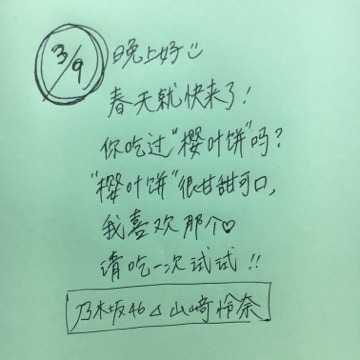 3/9
晚上好
春天就快来了!
你吃过“樱叶饼”吗?
“樱叶饼”很甘甜可口,
我喜欢那个♡
请吃一次试试!!
乃木坂46⊿山﨑怜奈